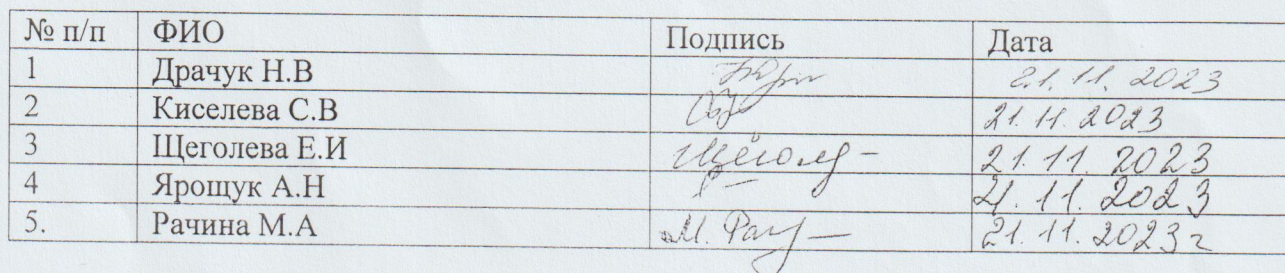 № п/п ФИО Подпись Дата
1 Драчук Н.В 21.11.2023
2 Киселева С.В 21.11.2023
3 Щеголева Е.И Щёголе 21.11.2023
4 Ярощук А.Н 21.11.2023
5. Рачина М.А М. Рач 21.11.2023г